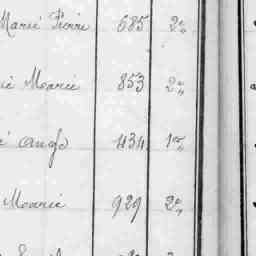 Marie Pierre 685 2e
Marie 853 2e
Ange 434 1er
Marie 929 2e